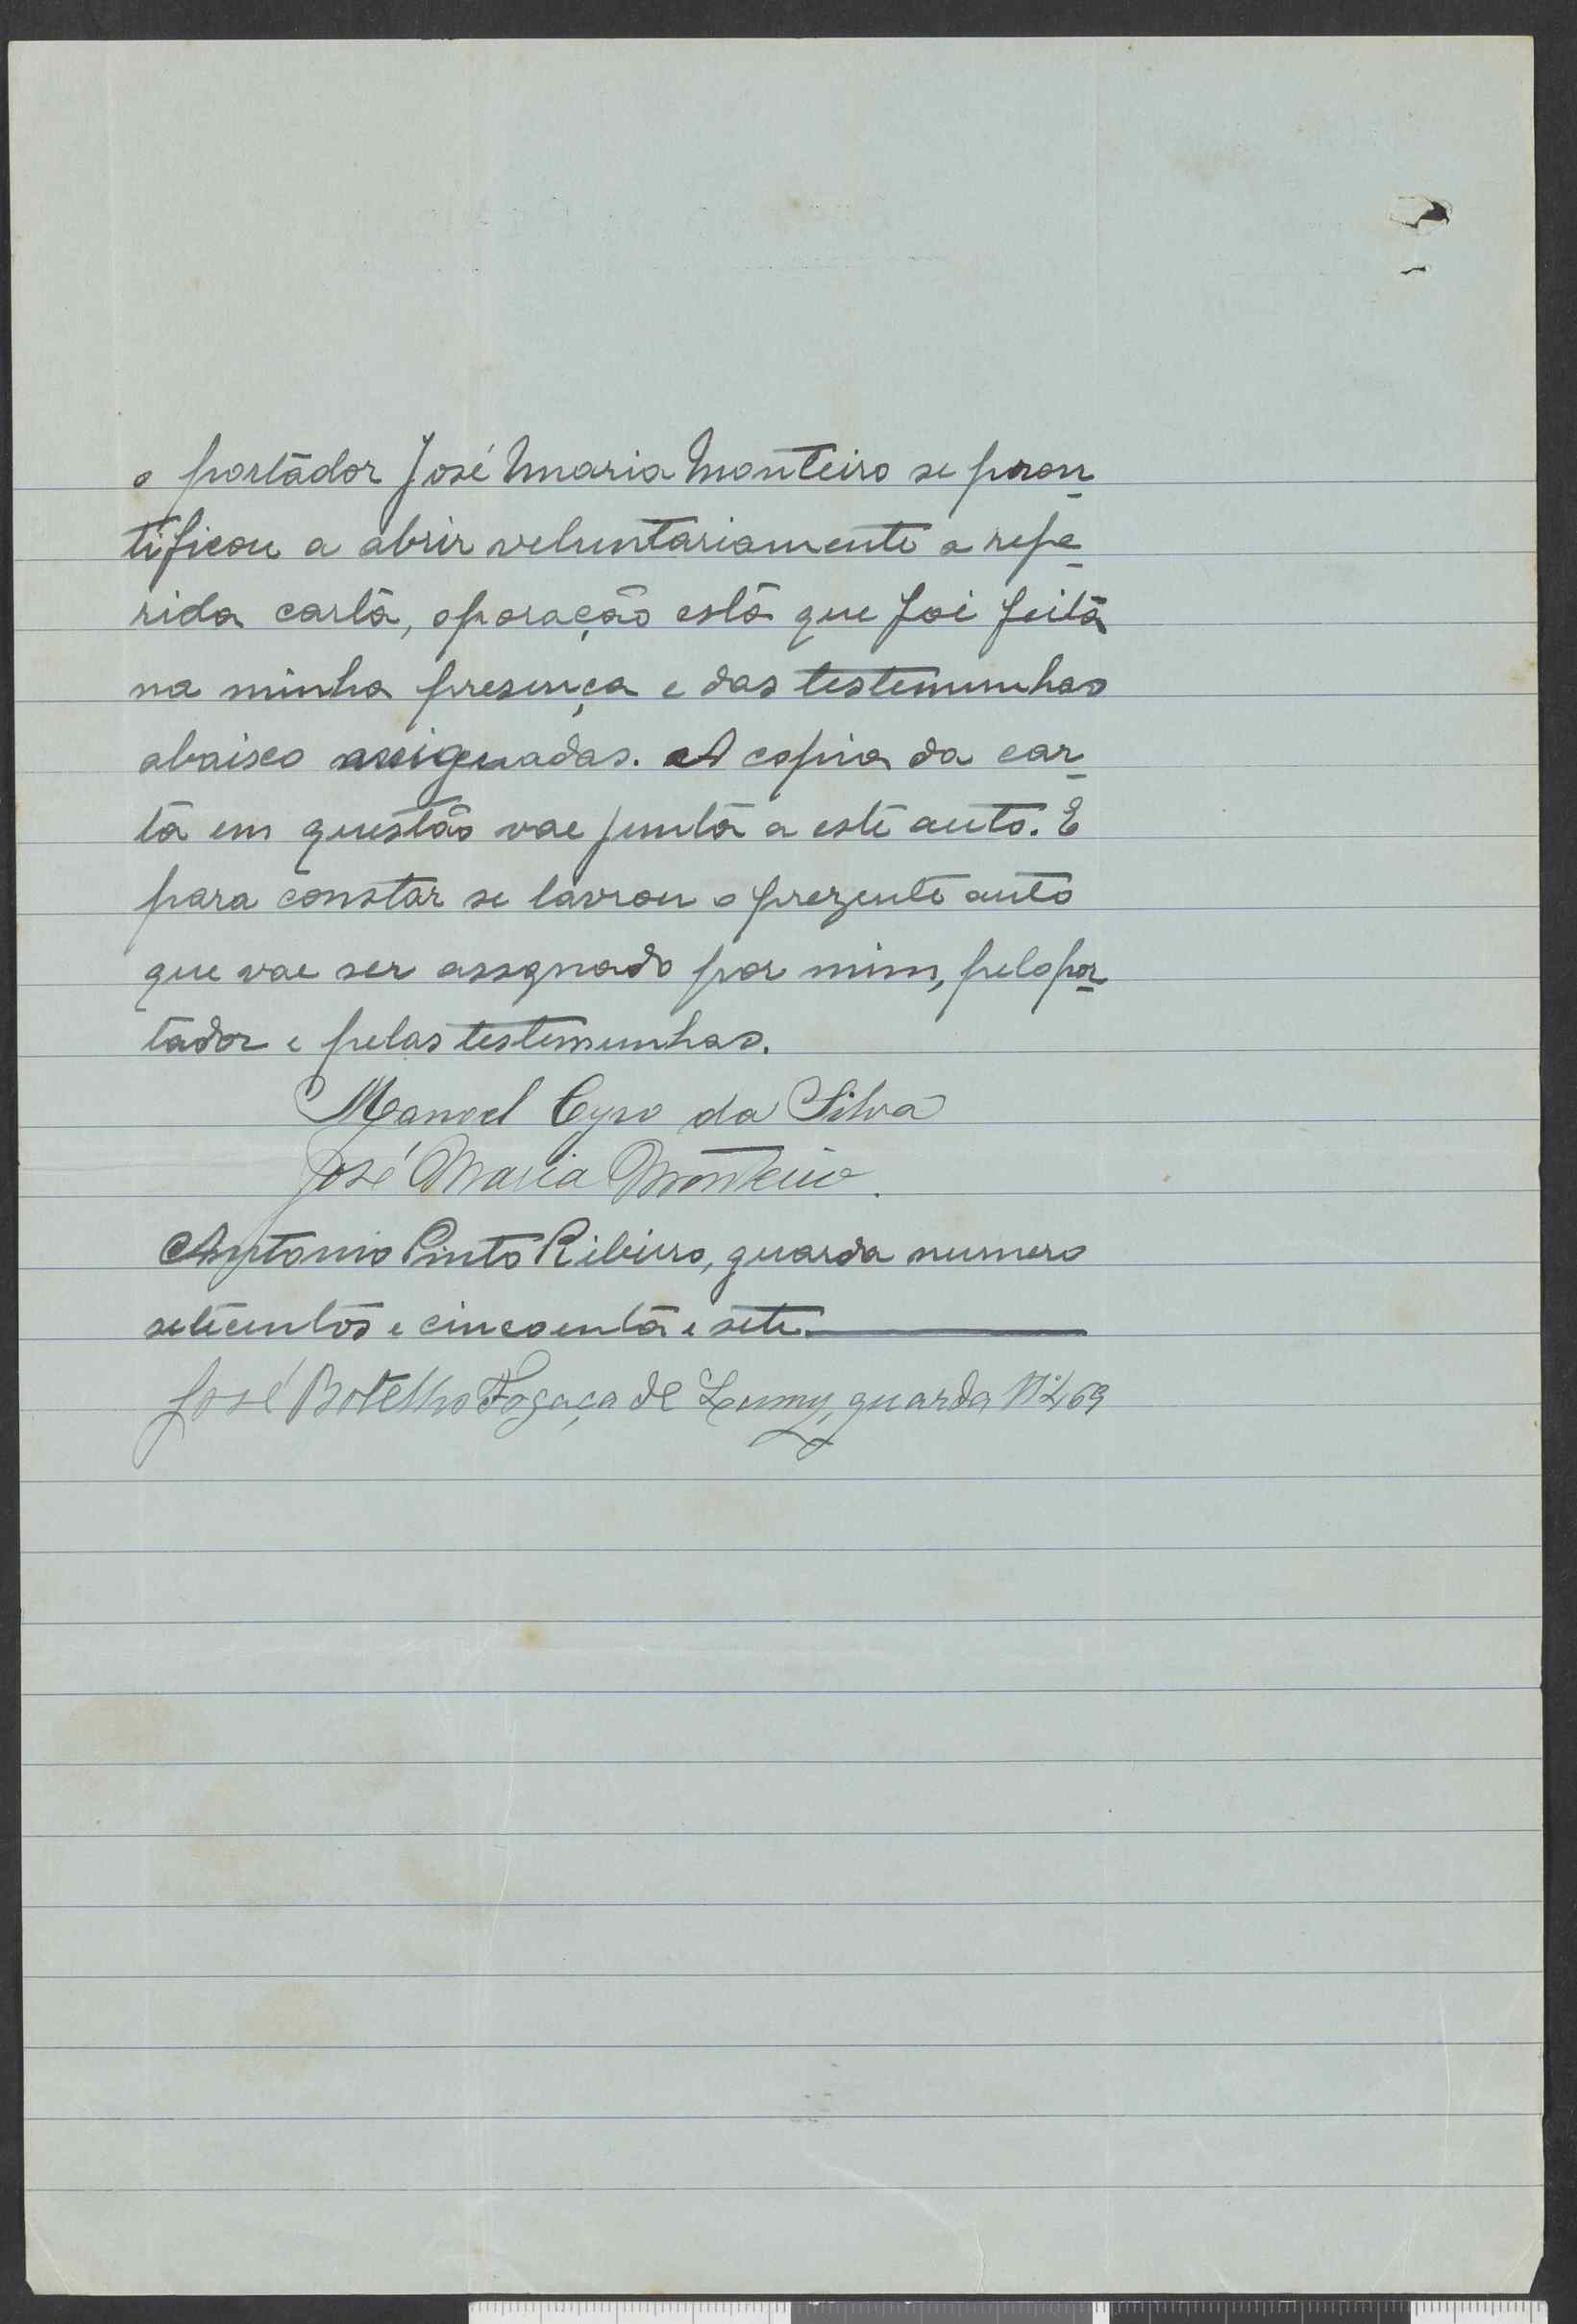 o portador José Maria Monteiro se pron-
tificou a abrir voluntariamente a refe-
rida carta, oporação esta que foi feita
na minha presença e das testemunhas
abaixo assignadas. A copia da car-
ta em questão vae junta a este auto. E
para constar se lavrou o prezente auto
que vae ser assgnado por mim, pelo por-
tador e pelas testemunhas.
Manoel Cyro da Silva
José Maria Monteiro.
Antonio Pinto Ribeiro, guarda numero
setecentos e cincoenta e sete.
José Botelho Fogaça de guarda Nº 469